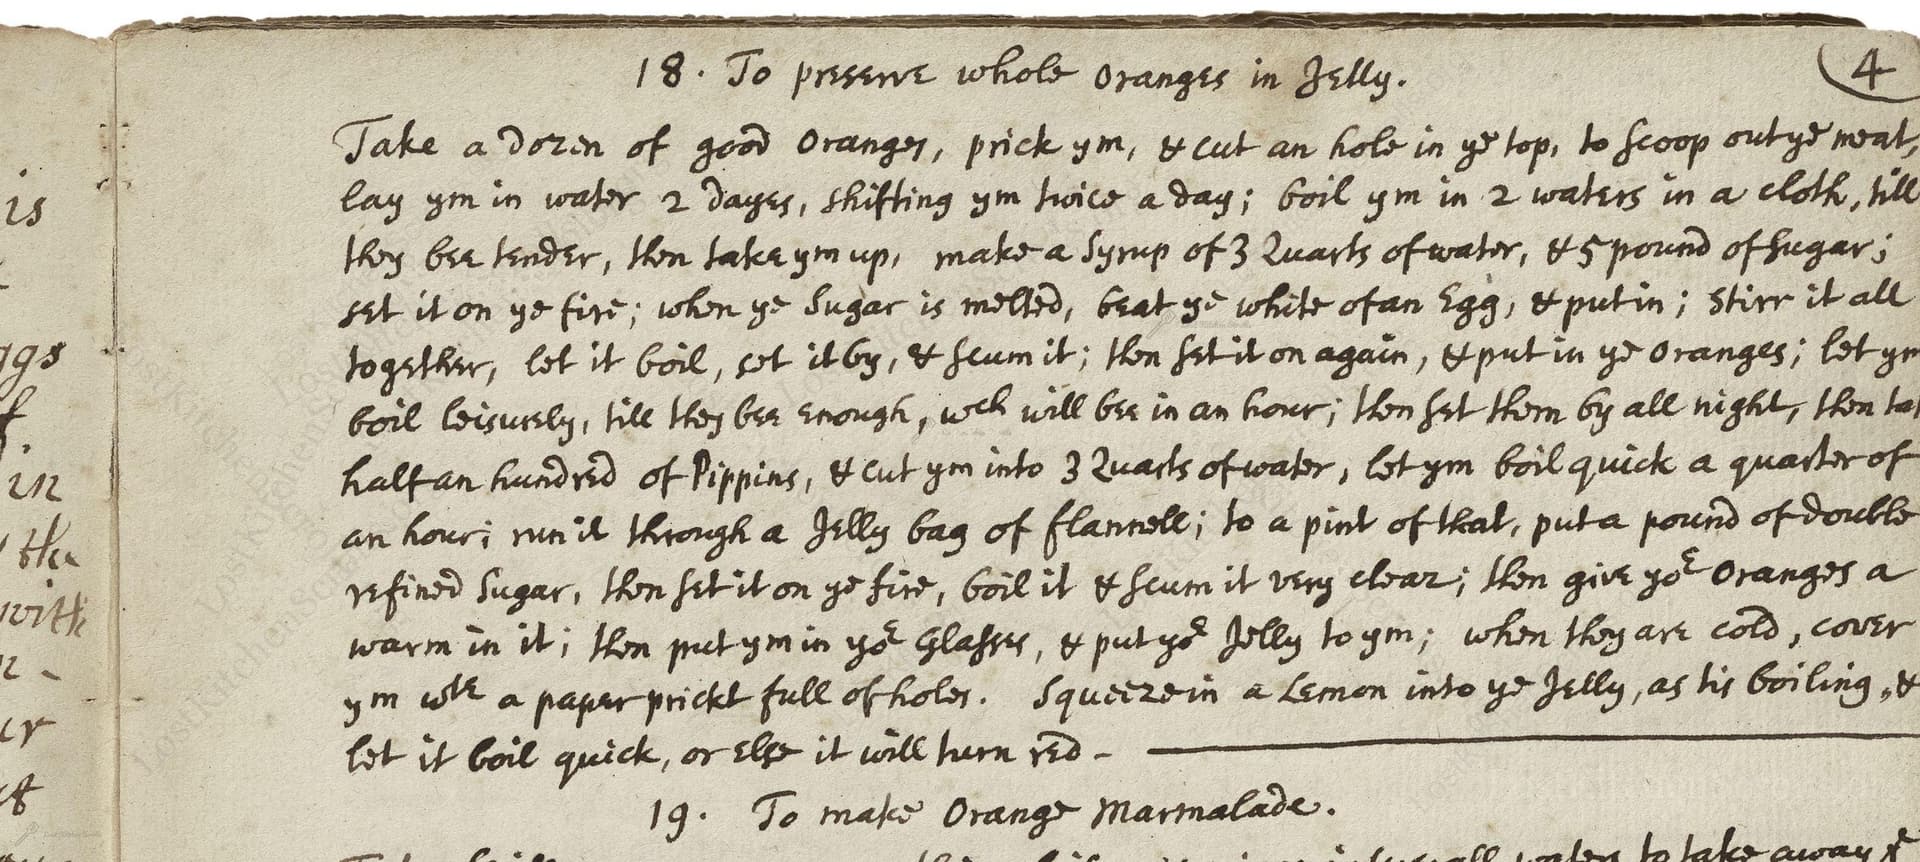 18. To preserve whole Oranges in Jelly.
4
Take a dozen of good Oranges, prick ym, & cut an hole in ye top, to scoop out ye meat,
lay ym in water 2 dayes, shifting ym twice a day; boil ym in 2 waters in a cloth, till
they bee tender, then take ym up, make a Syrup of 3 Quarts of water, & 5 pound of Sugar;
set it on ye fire; when ye Sugar is melted, beat ye white of an Egg, & put in; stirr it all
together, let it boil, set it by, & scum it; then set it on again, & put in ye Oranges; let ym
boil leisurely, till they bee enough, wch will bee in an hour; then set them by all night, then
half an hundred of Pippins, & cut ym into 3 Quarts of water, let ym boil quick a quarter of
an hour; run it through a Jelly bag of flannell; to a pint of that, put a pound of double
refined Sugar, then set it on ye fire, boil it & scum it very clear; then give yor Oranges a
warm in it; then put ym in yor Glasses, & put yor Jelly to ym; when they are cold, cover
ym wth a paper prickt full of holes. Squeeze in a Lemon into ye Jelly, as tis boiling, &
let it boil quick, or else it will turn red -
19. To make Orange Marmalade.
water to take away ye
is
in
the
with